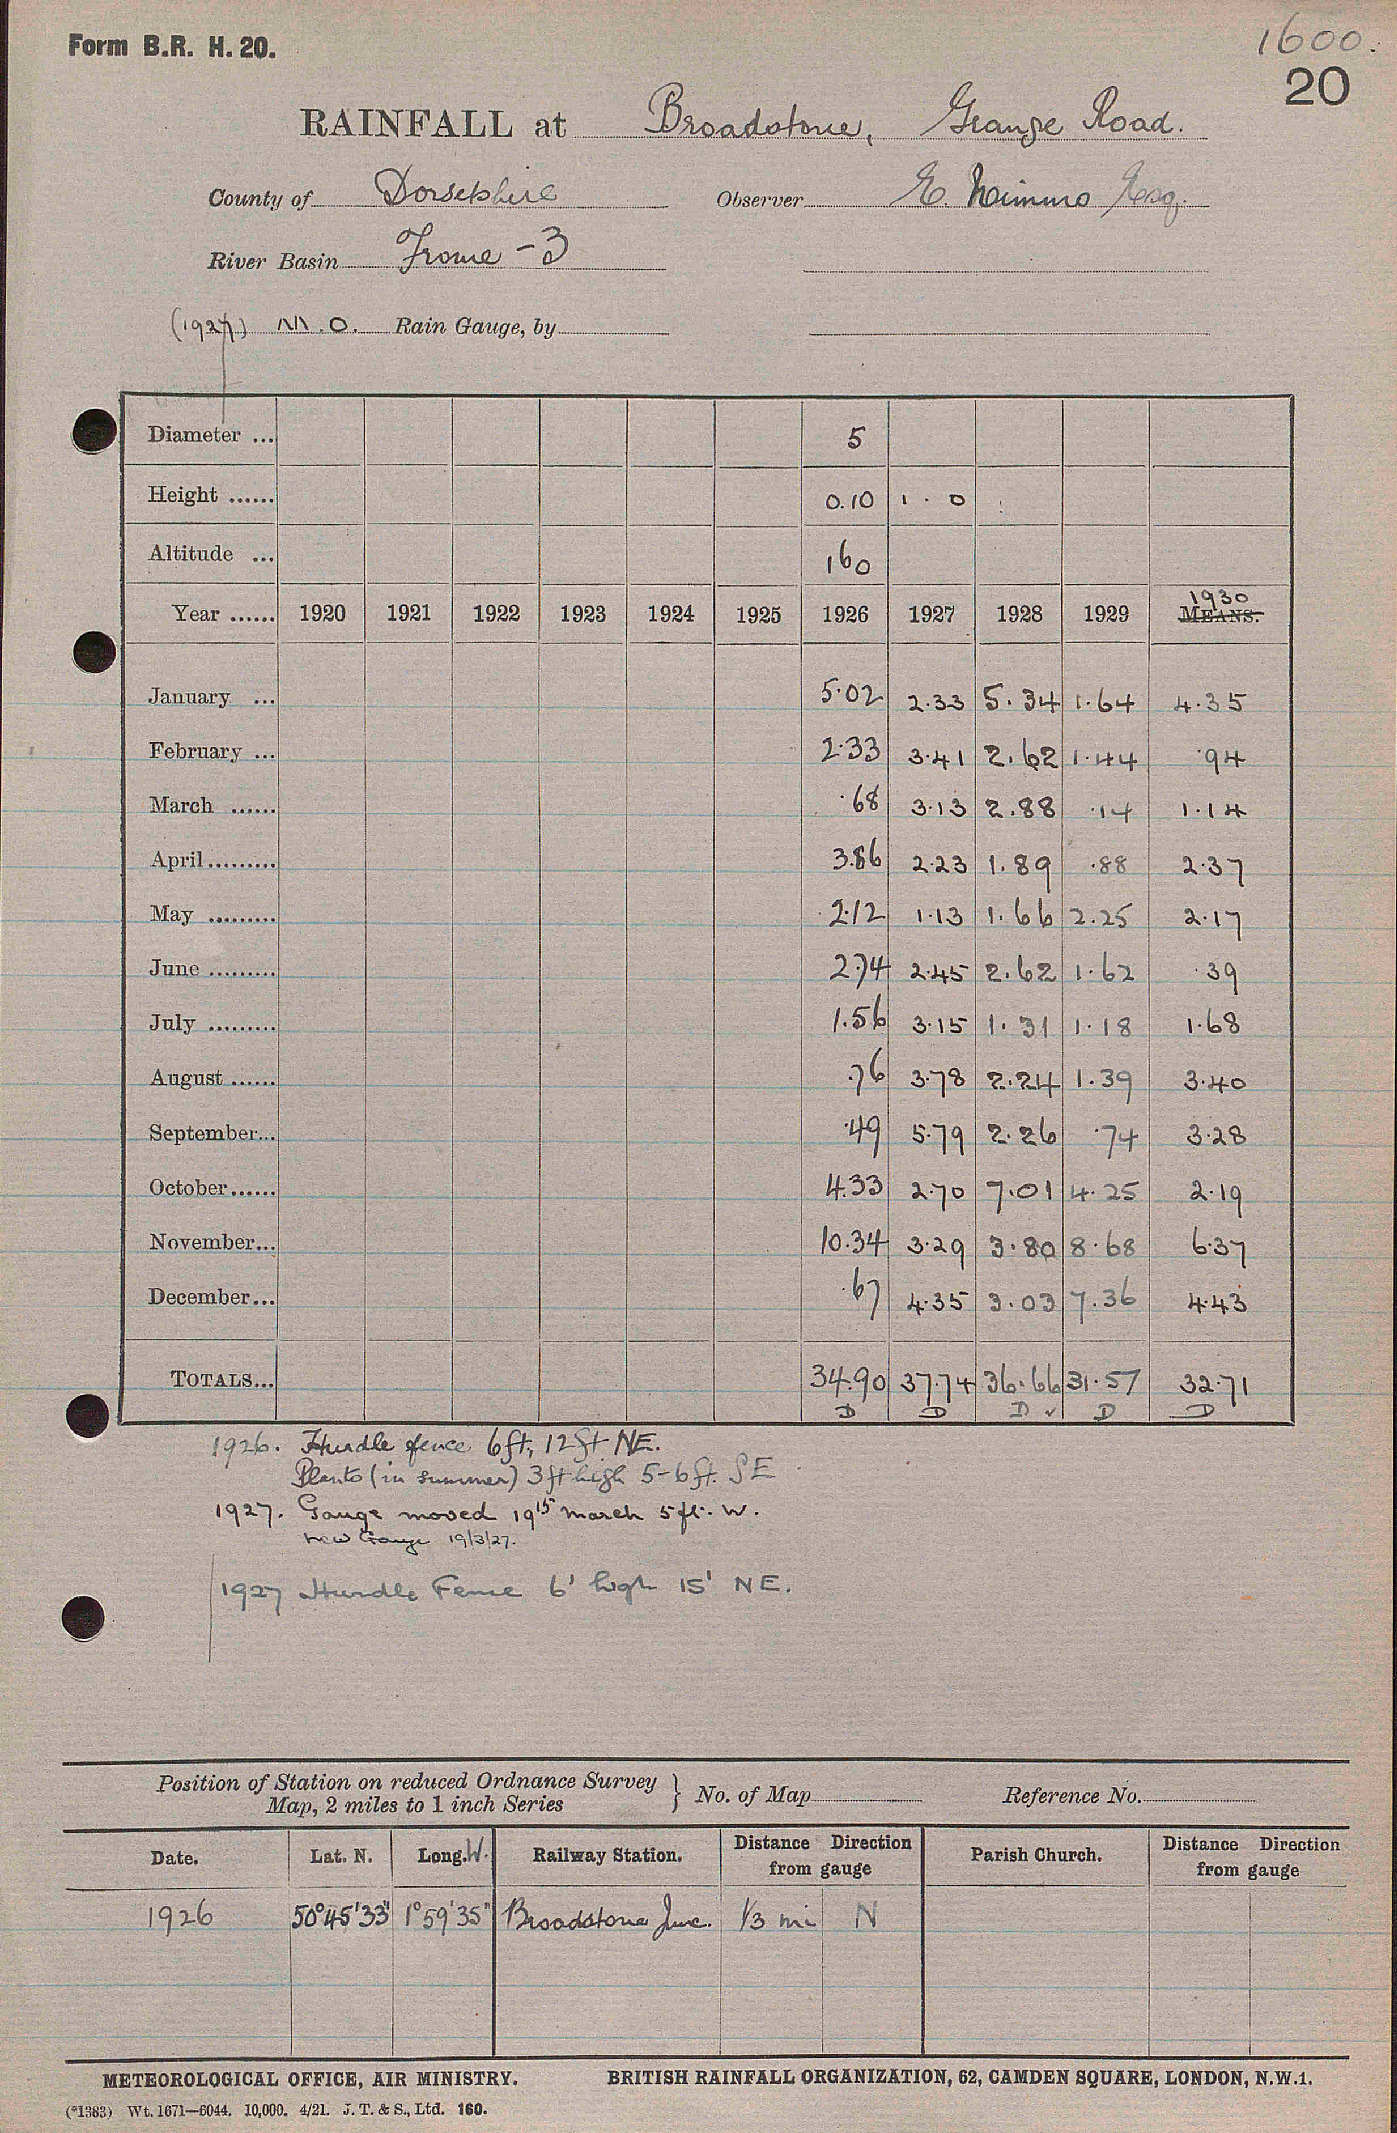 Form B.R. H. 20.
1600.
20
RAINFALL at Broadstone, Grange Road.
County of Dorsetshire Observer E. Nimmo Esq.
River Basin Frome - 3
(1927) M.O. Rain Gauge, by
Diameter ... 5
Height ...... 0.10 1 . 0
Altitude ... 160
Year ...... 1920 1921 1922 1923 1924 1925 1926 1927 1928 1929 1930 MEANS.
January ... 5.02 2.33 5.34 1.64 4.35
February ... 2.33 3.41 2.62 1.44 .94
March ...... .68 3.13 2.88 .14 1.14
April ......... 3.86 2.23 1.89 .88 2.37
May ......... 2.12 1.13 1.66 2.25 2.17
June ......... 2.74 2.45 2.62 1.62 .39
July ......... 1.56 3.15 1.31 1.18 1.68
August ...... .76 3.78 2.24 1.39 3.40
September... .49 5.79 2.26 .74 3.28
October ...... 4.33 2.70 7.01 4.25 2.19
November... 10.34 3.29 3.80 8.68 6.37
December... .67 4.35 3.03 7.36 4.43
TOTALS... 34.90 37.74 36.66 31.57 32.71
D D D ✓ D D
1926. Hurdle fence 6ft, 12ft NE.
Plants (in summer) 3ft high 5-6ft. SE
1927. Gauge moved 19th March 5ft. W.
New Gauge 19/3/27.
1927 Hurdle Fence 6' high 15' NE.
Position of Station on reduced Ordnance Survey Map, 2 miles to 1 inch Series } No. of Map Reference No.
Date. Lat. N. Long. W. Railway Station. Distance Direction from gauge Parish Church. Distance Direction from gauge
1926 50°45'33" 1°59'35" Broadstone Junc. 1/3 mi N
METEOROLOGICAL OFFICE, AIR MINISTRY. BRITISH RAINFALL ORGANIZATION, 62, CAMDEN SQUARE, LONDON, N.W.1.
(*1383) Wt. 1671—6044. 10,000. 4/21. J. T. & S., Ltd. 160.